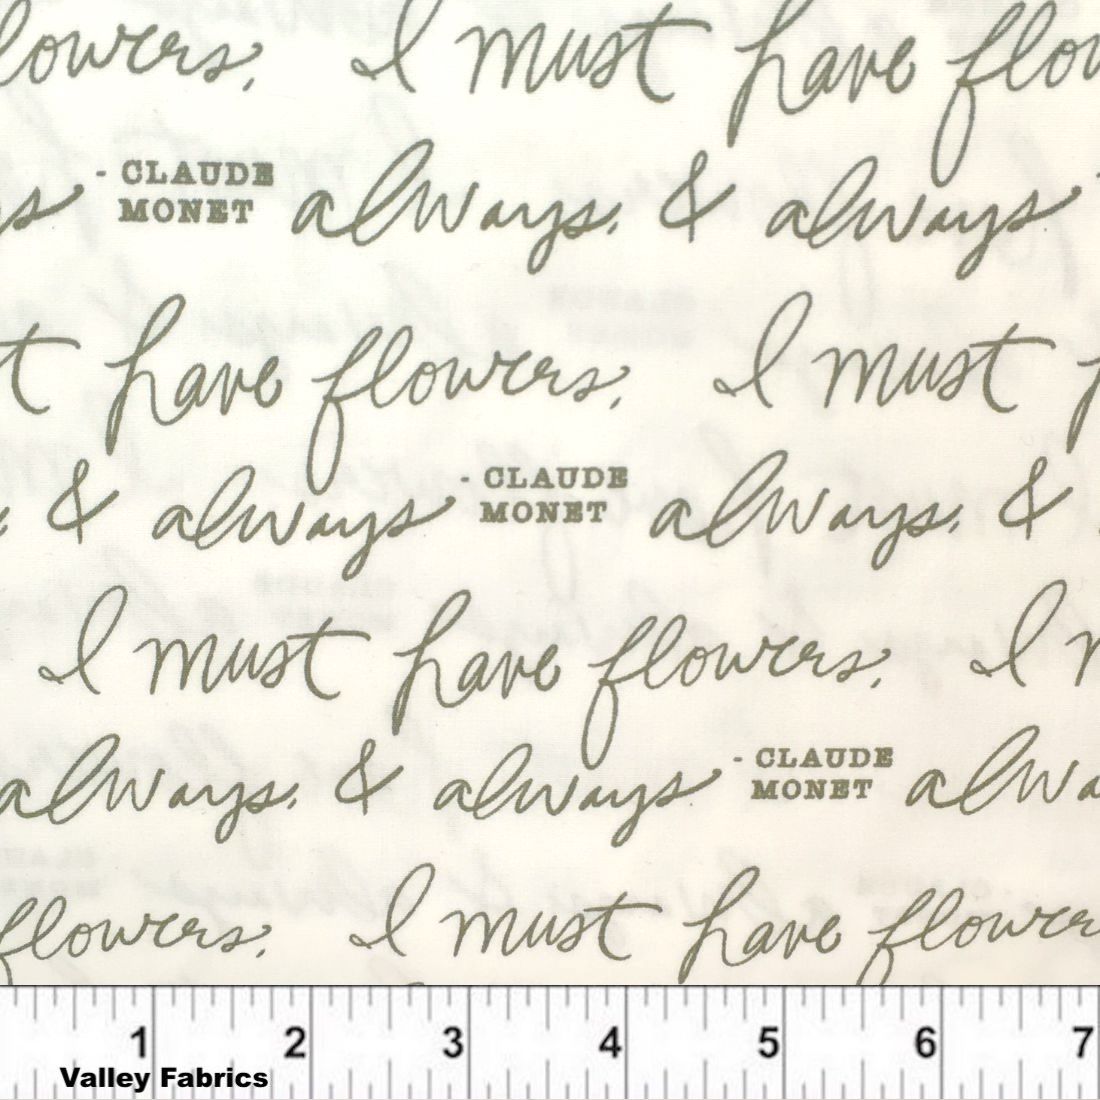 lowers, I must have flow
s - CLAUDE always, & always
MONET
t have flowers, I must
& always - CLAUDE always, &
MONET
I must have flowers, I m
always, & always - CLAUDE alwa
MONET
flowers, I must have flower
1 2 3 4 5 6 7
Valley Fabrics